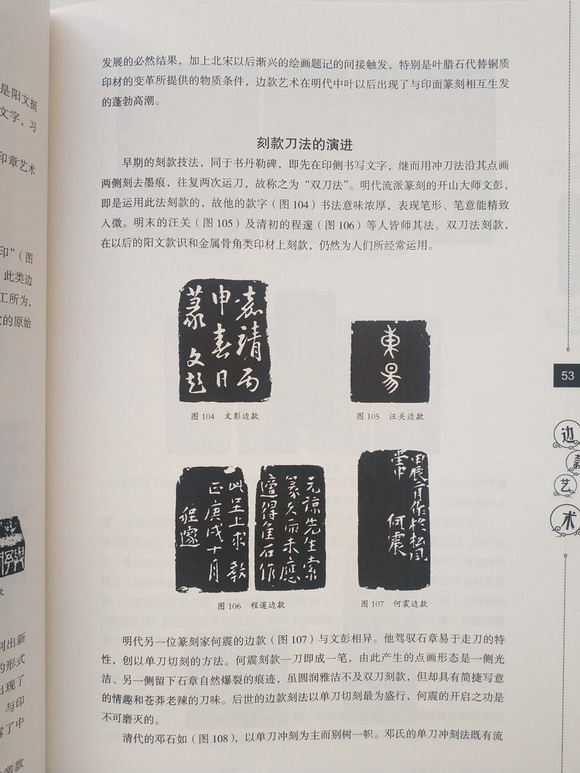 是阳文挺
文字，习
印章艺术
印”（图
此类边
工所为，
文的原始
列出新
的形式
出现了
与印
露了中
发展的必然结果，加上北宋以后渐兴的绘画题记的间接触发，特别是叶腊石代替铜质
印材的变革所提供的物质条件，边款艺术在明代中叶以后出现了与印面篆刻相互生发
的蓬勃高潮。
刻款刀法的演进
早期的刻款技法，同于书丹勒碑，即先在印侧书写文字，继而用冲刀法沿其点画
两侧刻去墨痕，往复两次运刀，故称之为“双刀法”。明代流派篆刻的开山大师文彭，
即是运用此法刻款的，故他的款字（图 104）书法意味浓厚，表现笔形、笔意能精致
入微。明末的汪关（图 105）及清初的程邃（图 106）等人皆师其法。双刀法刻款，
在以后的阳文款识和金属骨角类印材上刻款，仍然为人们所经常运用。
嘉靖丙
申春日
篆 文彭
图 104 文彭边款
東昜
图 105 汪关边款
元諒先生索
篆久而未應
適得佳石作
此呈上求教
正庚戌十月
程邃
图 106 程邃边款
作於松風
堂中 何震
图 107 何震边款
明代另一位篆刻家何震的边款（图 107）与文彭相异。他驾驭石章易于走刀的特
性，创以单刀切刻的方法。何震刻款一刀即成一笔，由此产生的点画形态是一侧光
洁、另一侧留下石章自然爆裂的痕迹，虽圆润雅洁不及双刀刻款，但却具有简捷写意
的情趣和苍莽老辣的刀味。后世的边款刻法以单刀切刻最为盛行，何震的开启之功是
不可磨灭的。
清代的邓石如（图 108），以单刀冲刻为主而别树一帜。邓氏的单刀冲刻法既有流
53
边
款
艺
术